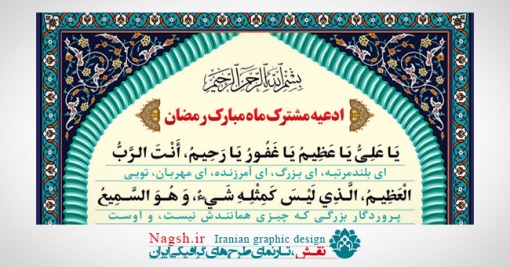 بِسْمِ اللهِ الرَّحْمنِ الرَّحِيمِ
ادعیه مشترک ماه مبارک رمضان
يَا عَلِيُّ يَا عَظِيمُ يَا غَفُورُ يَا رَحِيمُ، أَنْتَ الرَّبُّ
ای بلندمرتبه، ای بزرگ، ای آمرزنده، ای مهربان، تویی
الْعَظِيمُ، الَّذِي لَيْسَ كَمِثْلِهِ شَيْءٌ، وَ هُوَ السَّمِيعُ
پروردگار بزرگی که چیزی همانندش نیست، و اوست
Nagsh.ir Iranian graphic design
نقش، تارنمای طرح‌های گرافیکی ایران